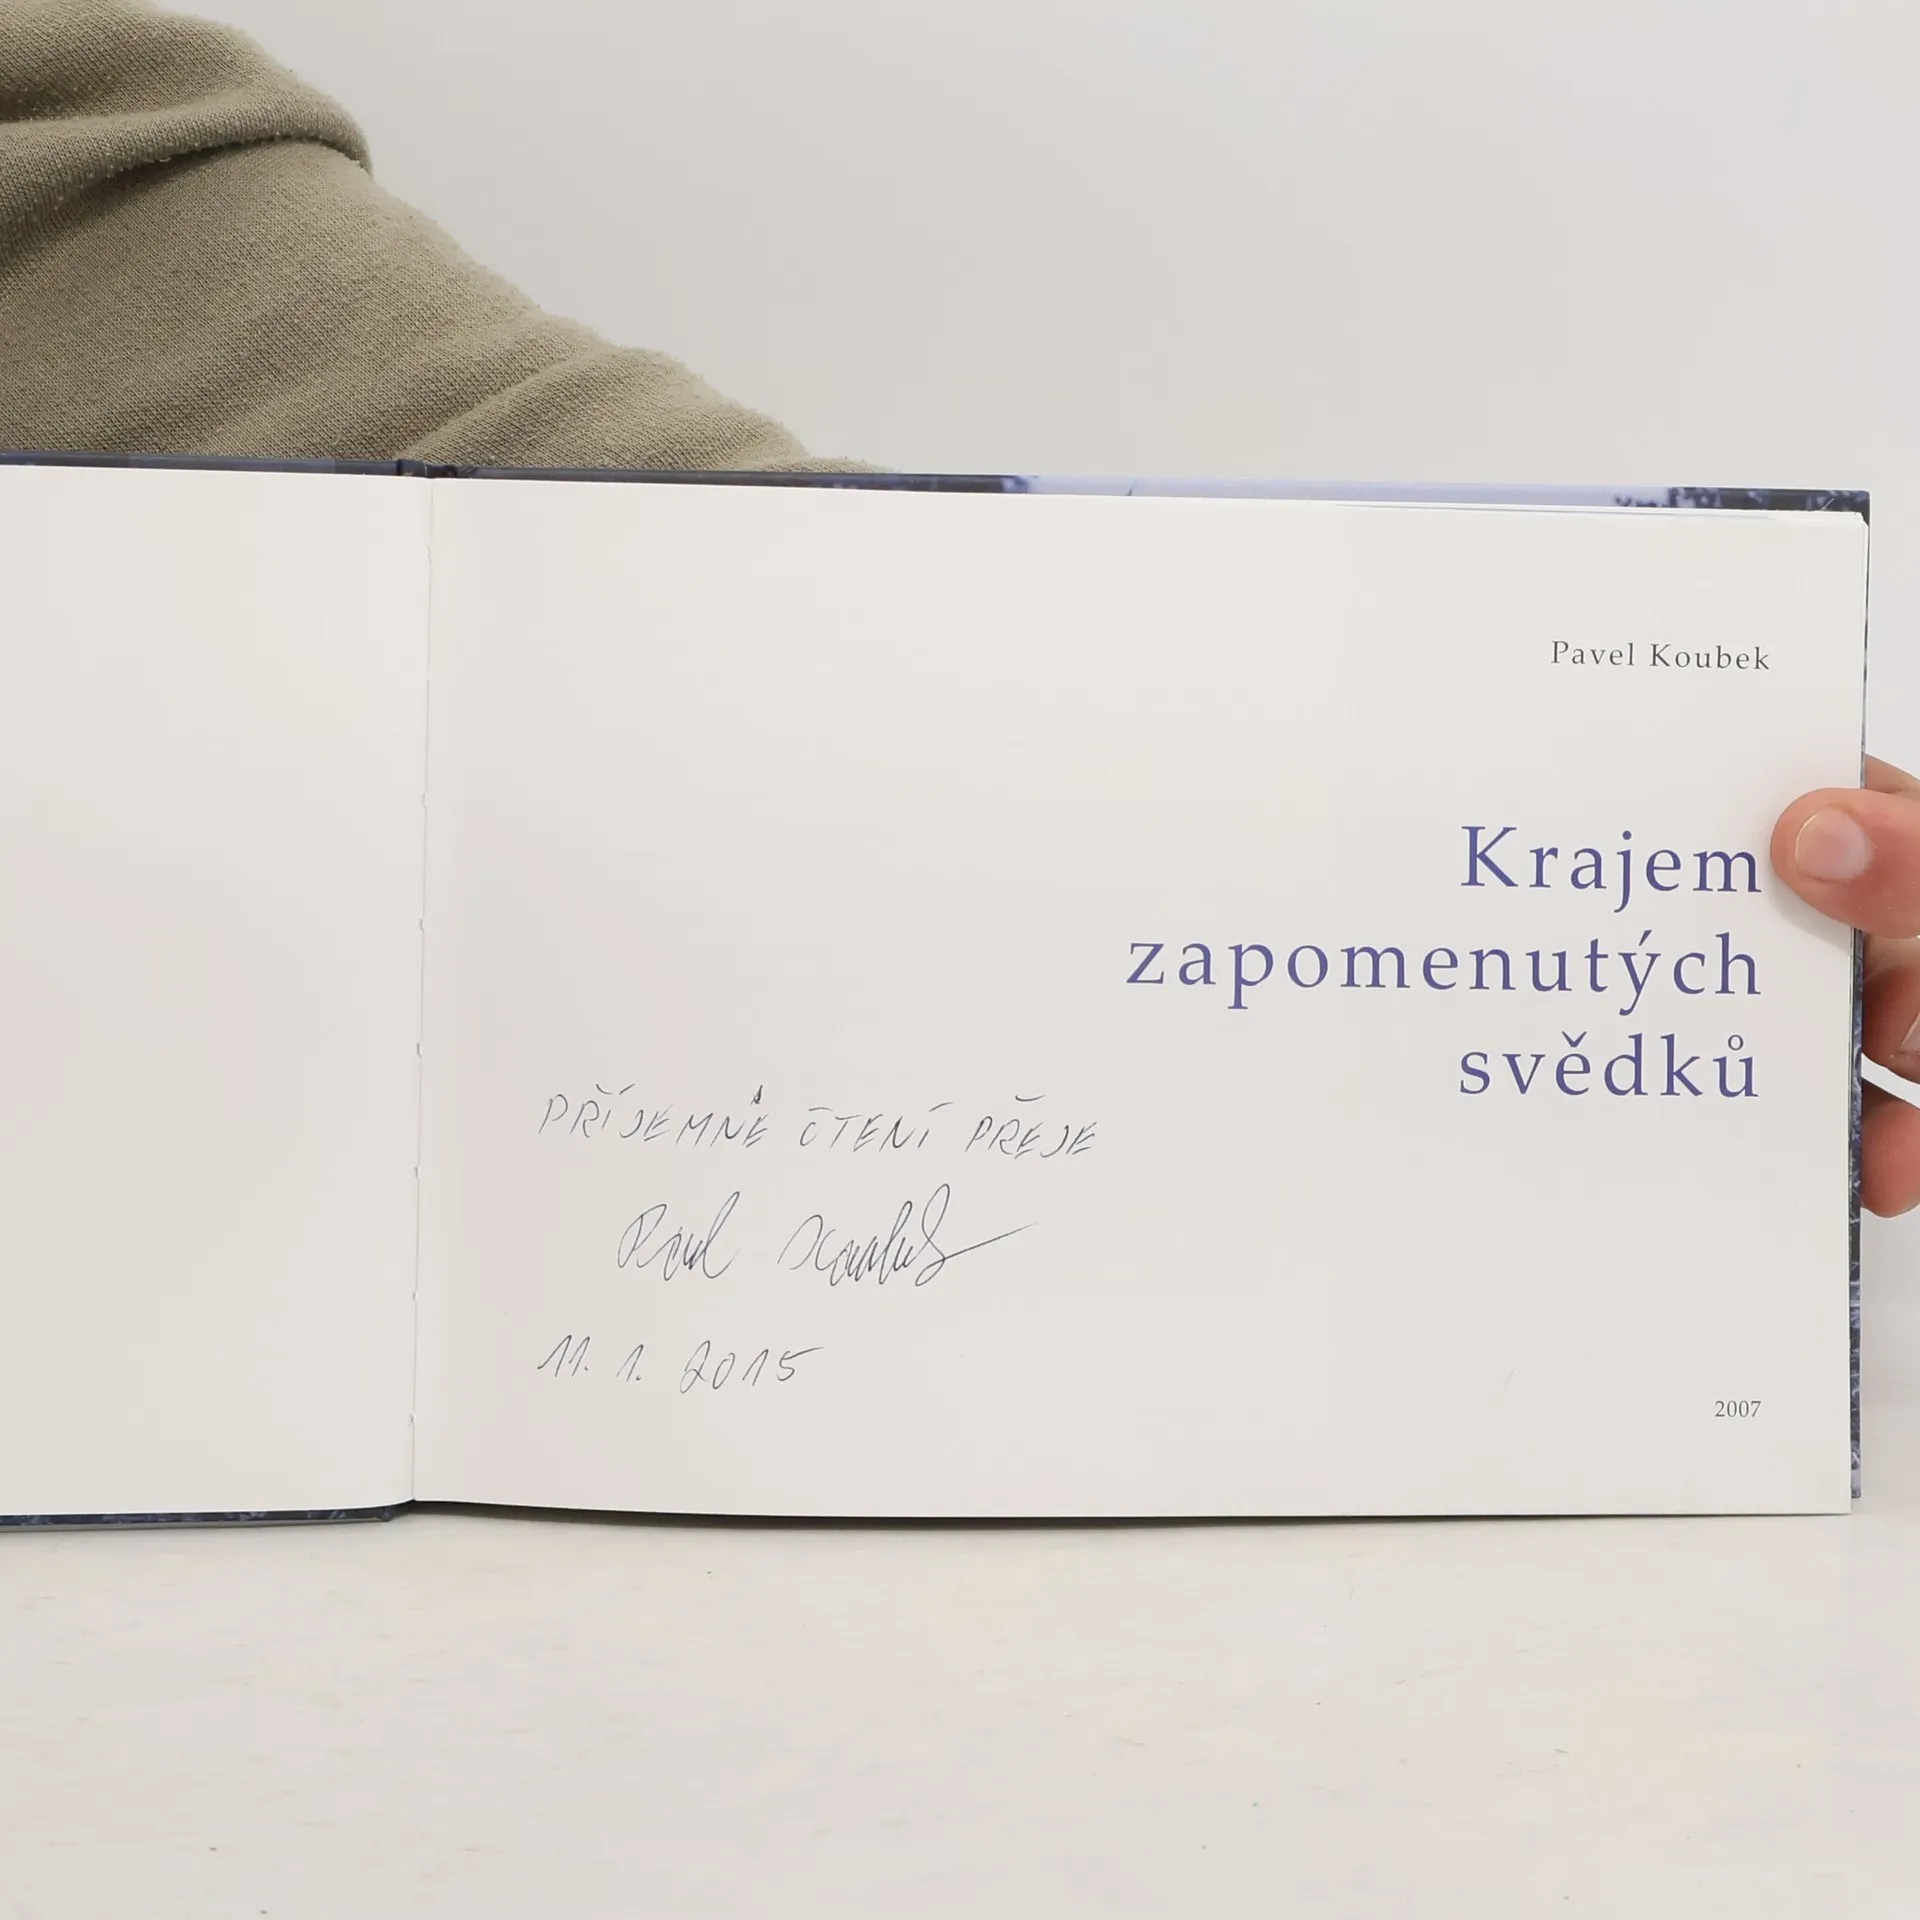 Pavel Koubek
Krajem
zapomenutých
svědků
PŘÍJEMNÉ ČTENÍ PŘEJE
Pavel Koubek
11. 1. 2015
2007